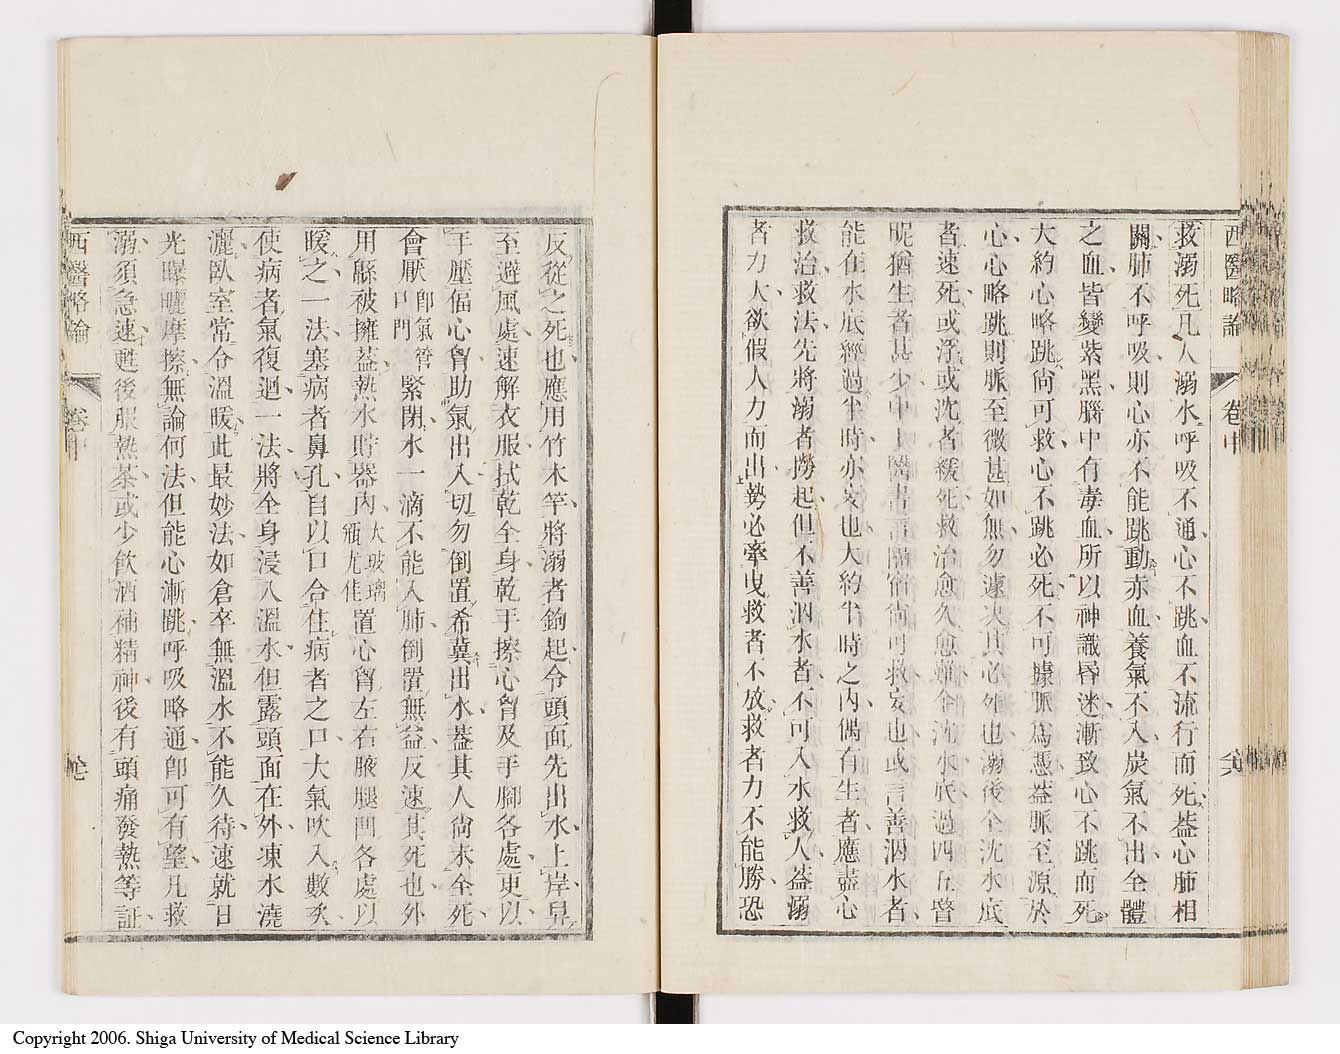 西醫略論 卷中 六
救溺死凡人溺水呼吸不通心不跳血不流行而死葢心肺相
關肺不呼吸則心亦不能跳動赤血養氣不入炭氣不出全體
之血皆變紫黑腦中有毒血所以神識昏迷漸致心不跳而死
大約心略跳尙可救心不跳必死不可據脈爲憑葢脈至源於
心心略跳則脈至微甚如無勿遽決其必死也溺後全沈水底
者速死或浮或沈者緩死救治愈久愈難全沈水底過四五瞥
昵猶生者甚少中土醫書言隔宿尙可救妄也或言善泅水者
能在水底經過半時亦妄也大約半時之內偶有生者應盡心
救治救法先將溺者撈起但不善泅水者不可入水救人葢溺
者力大欲假人力而出勢必牽曳救者不放救者力不能勝恐
反從之死也應用竹木竿將溺者鉤起令頭面先出水上岸舁
至避風處速解衣服拭乾全身乾手擦心胷及手腳各處更以
手壓偪心胷助氣出入切勿倒置希冀出水葢其人尙未全死
會厭卽氣管口門緊閉水一滴不能入肺倒置無益反速其死也外
用緜被擁葢熱水貯器內大玻璃瓶尤佳置心胷左右腋腿凹各處以
暖之一法塞病者鼻孔自以口合住病者之口大氣吹入數次
使病者氣復迴一法將全身浸入溫水但露頭面在外凍水澆
灑臥室常令溫暖此最妙法如倉卒無溫水不能久待速就日
光曝曬摩擦無論何法但能心漸跳呼吸略通卽可有望凡救
溺須急速甦後服熱茶或少飮酒補精神後有頭痛發熱等証
西醫略論 卷中